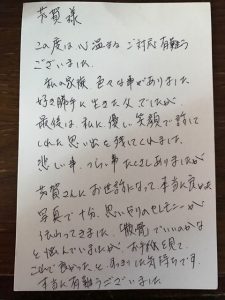 芳賀様
この度は心温まるご対応有難う
ございました。
私の家族、色々な事がありました。
好き勝手に生きた父でしたが
最後は私に優しい笑顔で許して
くれた思い出を残してくれました。
悲しい事、つらい事たくさんありましたが
芳賀さんにお世話になって本当に良かった
写真で十分、思いやりのセレモニーが
伝わってきました。「散骨」でいいのかな
と悩んでいましたがお手紙を見て、
これで良かった、と、すっきりした気持ちです。
本当に有難うございました